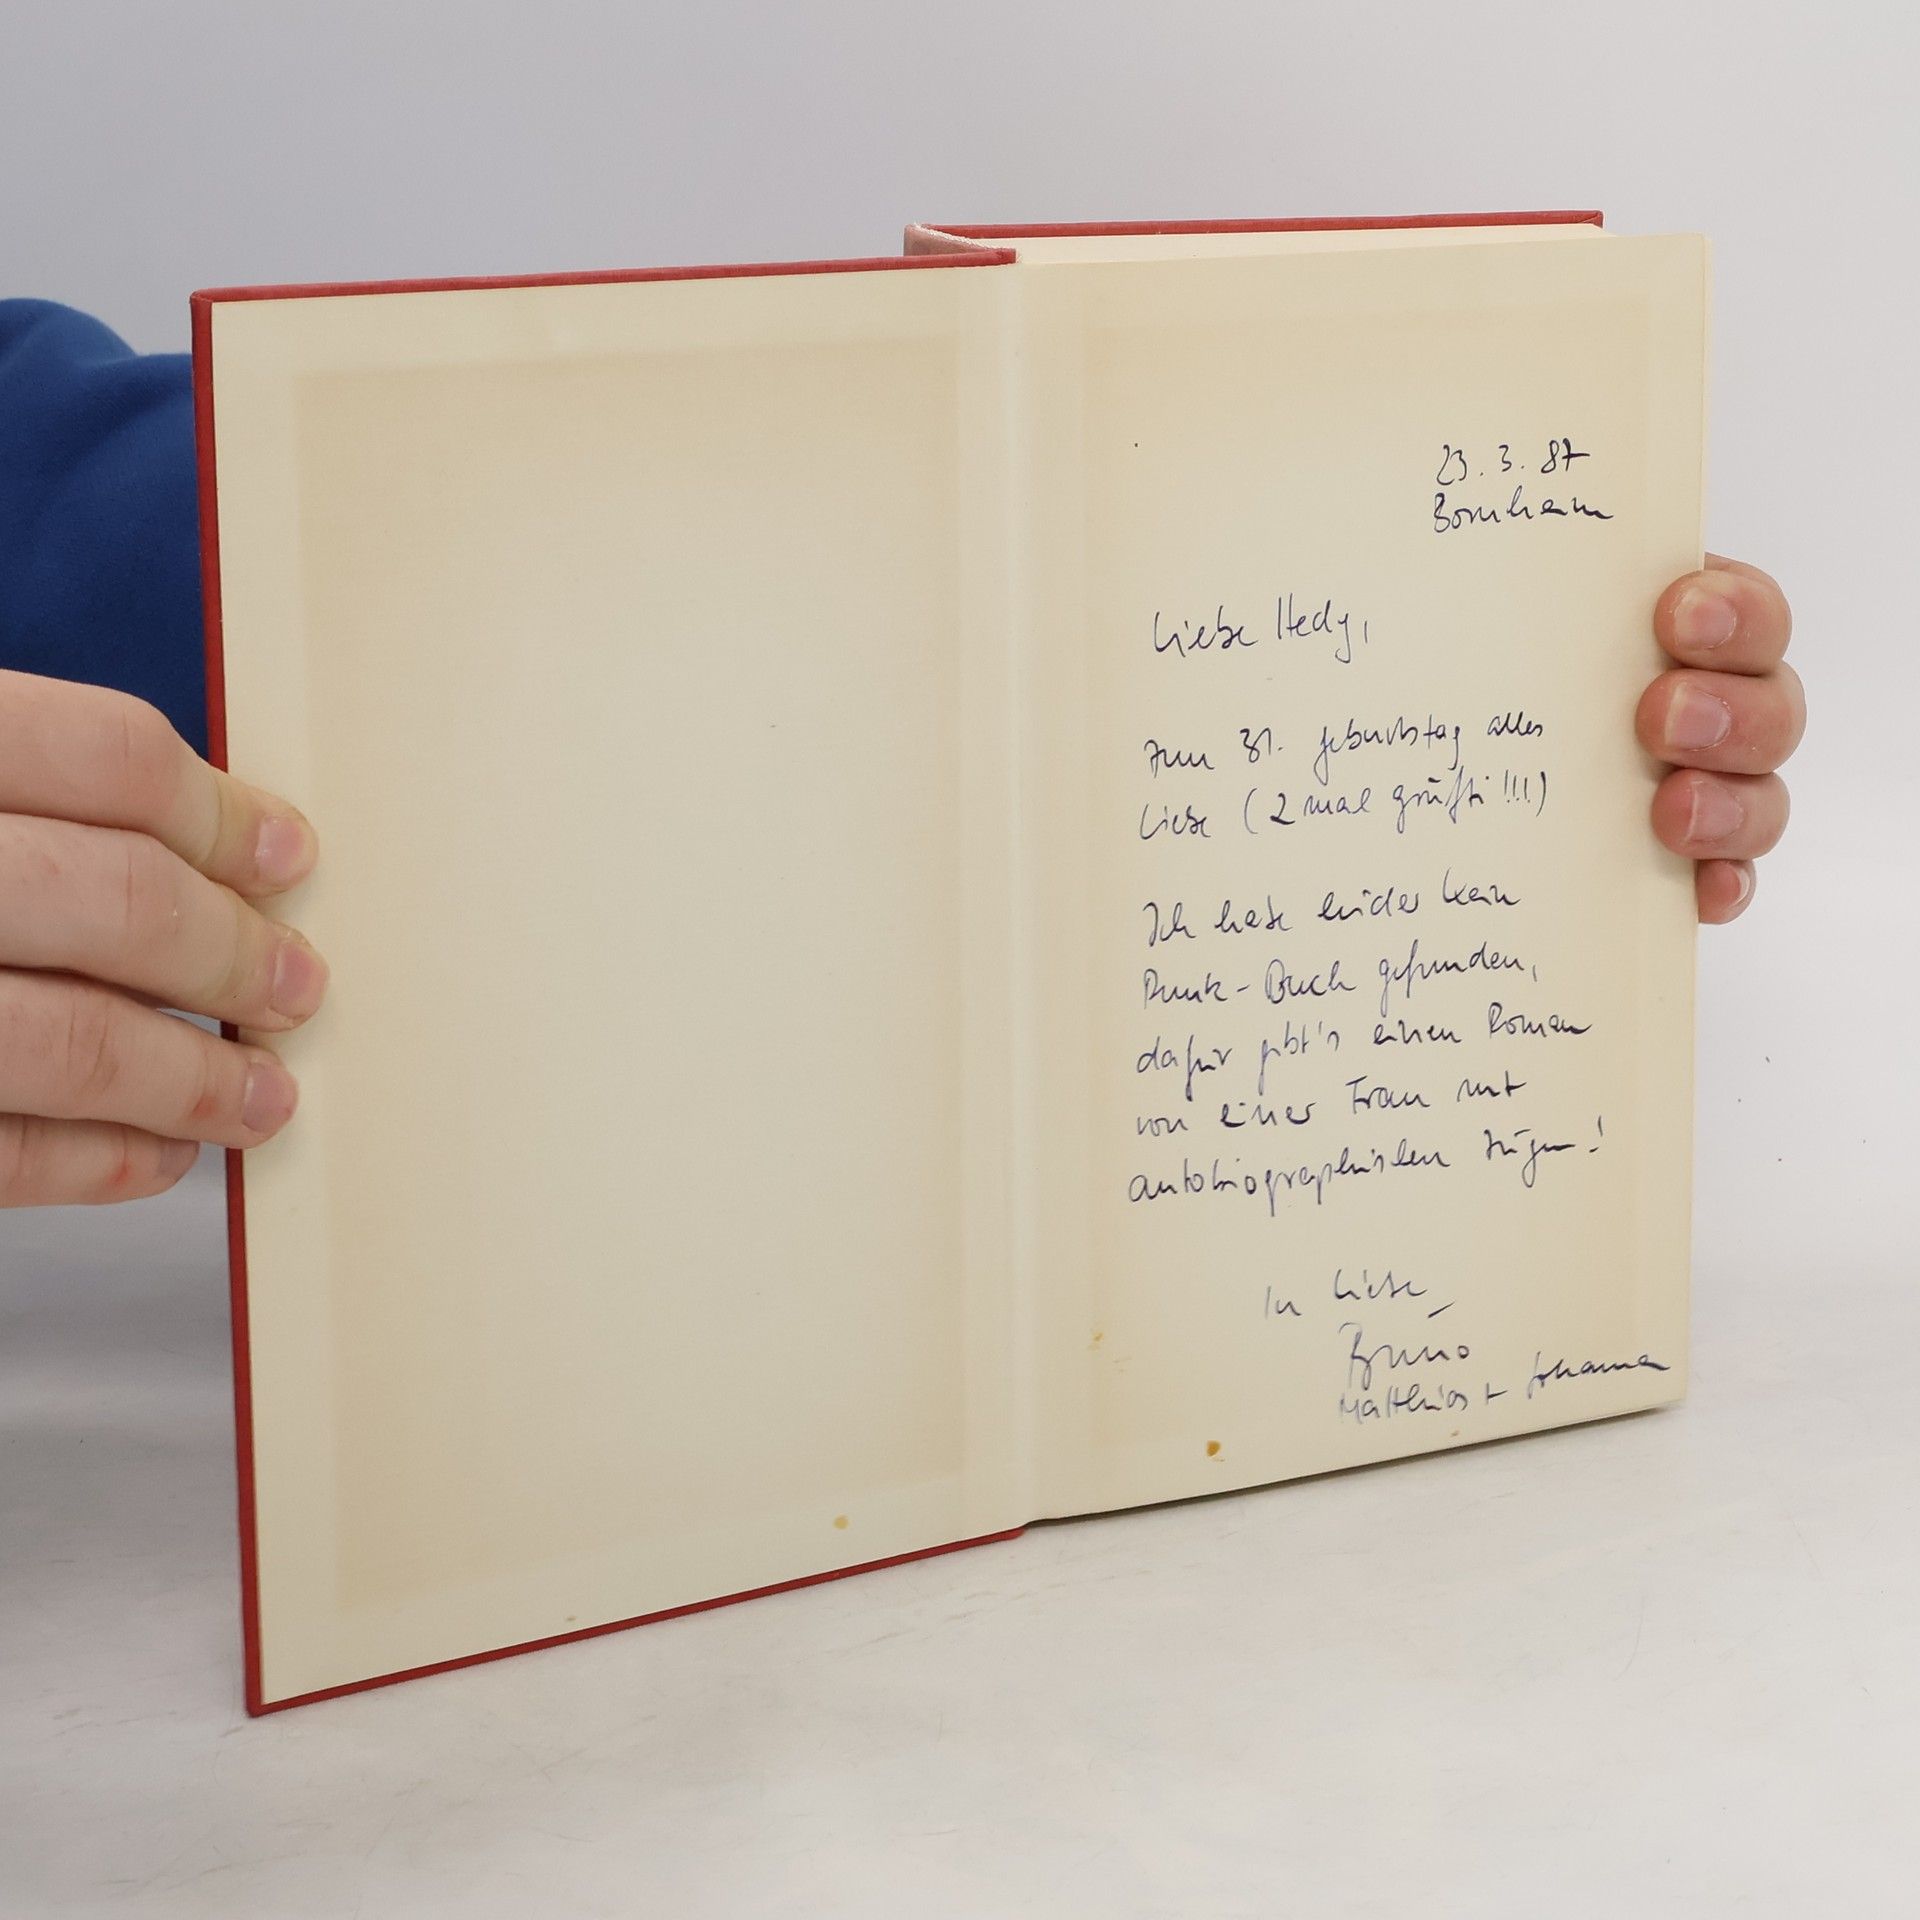 23.3.87
Bornheim
Liebe Hedy,
zum 31. Geburtstag alles
Liebe (2 mal grufti!!!)
Ich habe leider kein
Punk-Buch gefunden,
dafür gibt's einen Roman
von einer Frau mit
autobiographischen Zügen!
In Liebe
Bruno
Matthias + Johanna